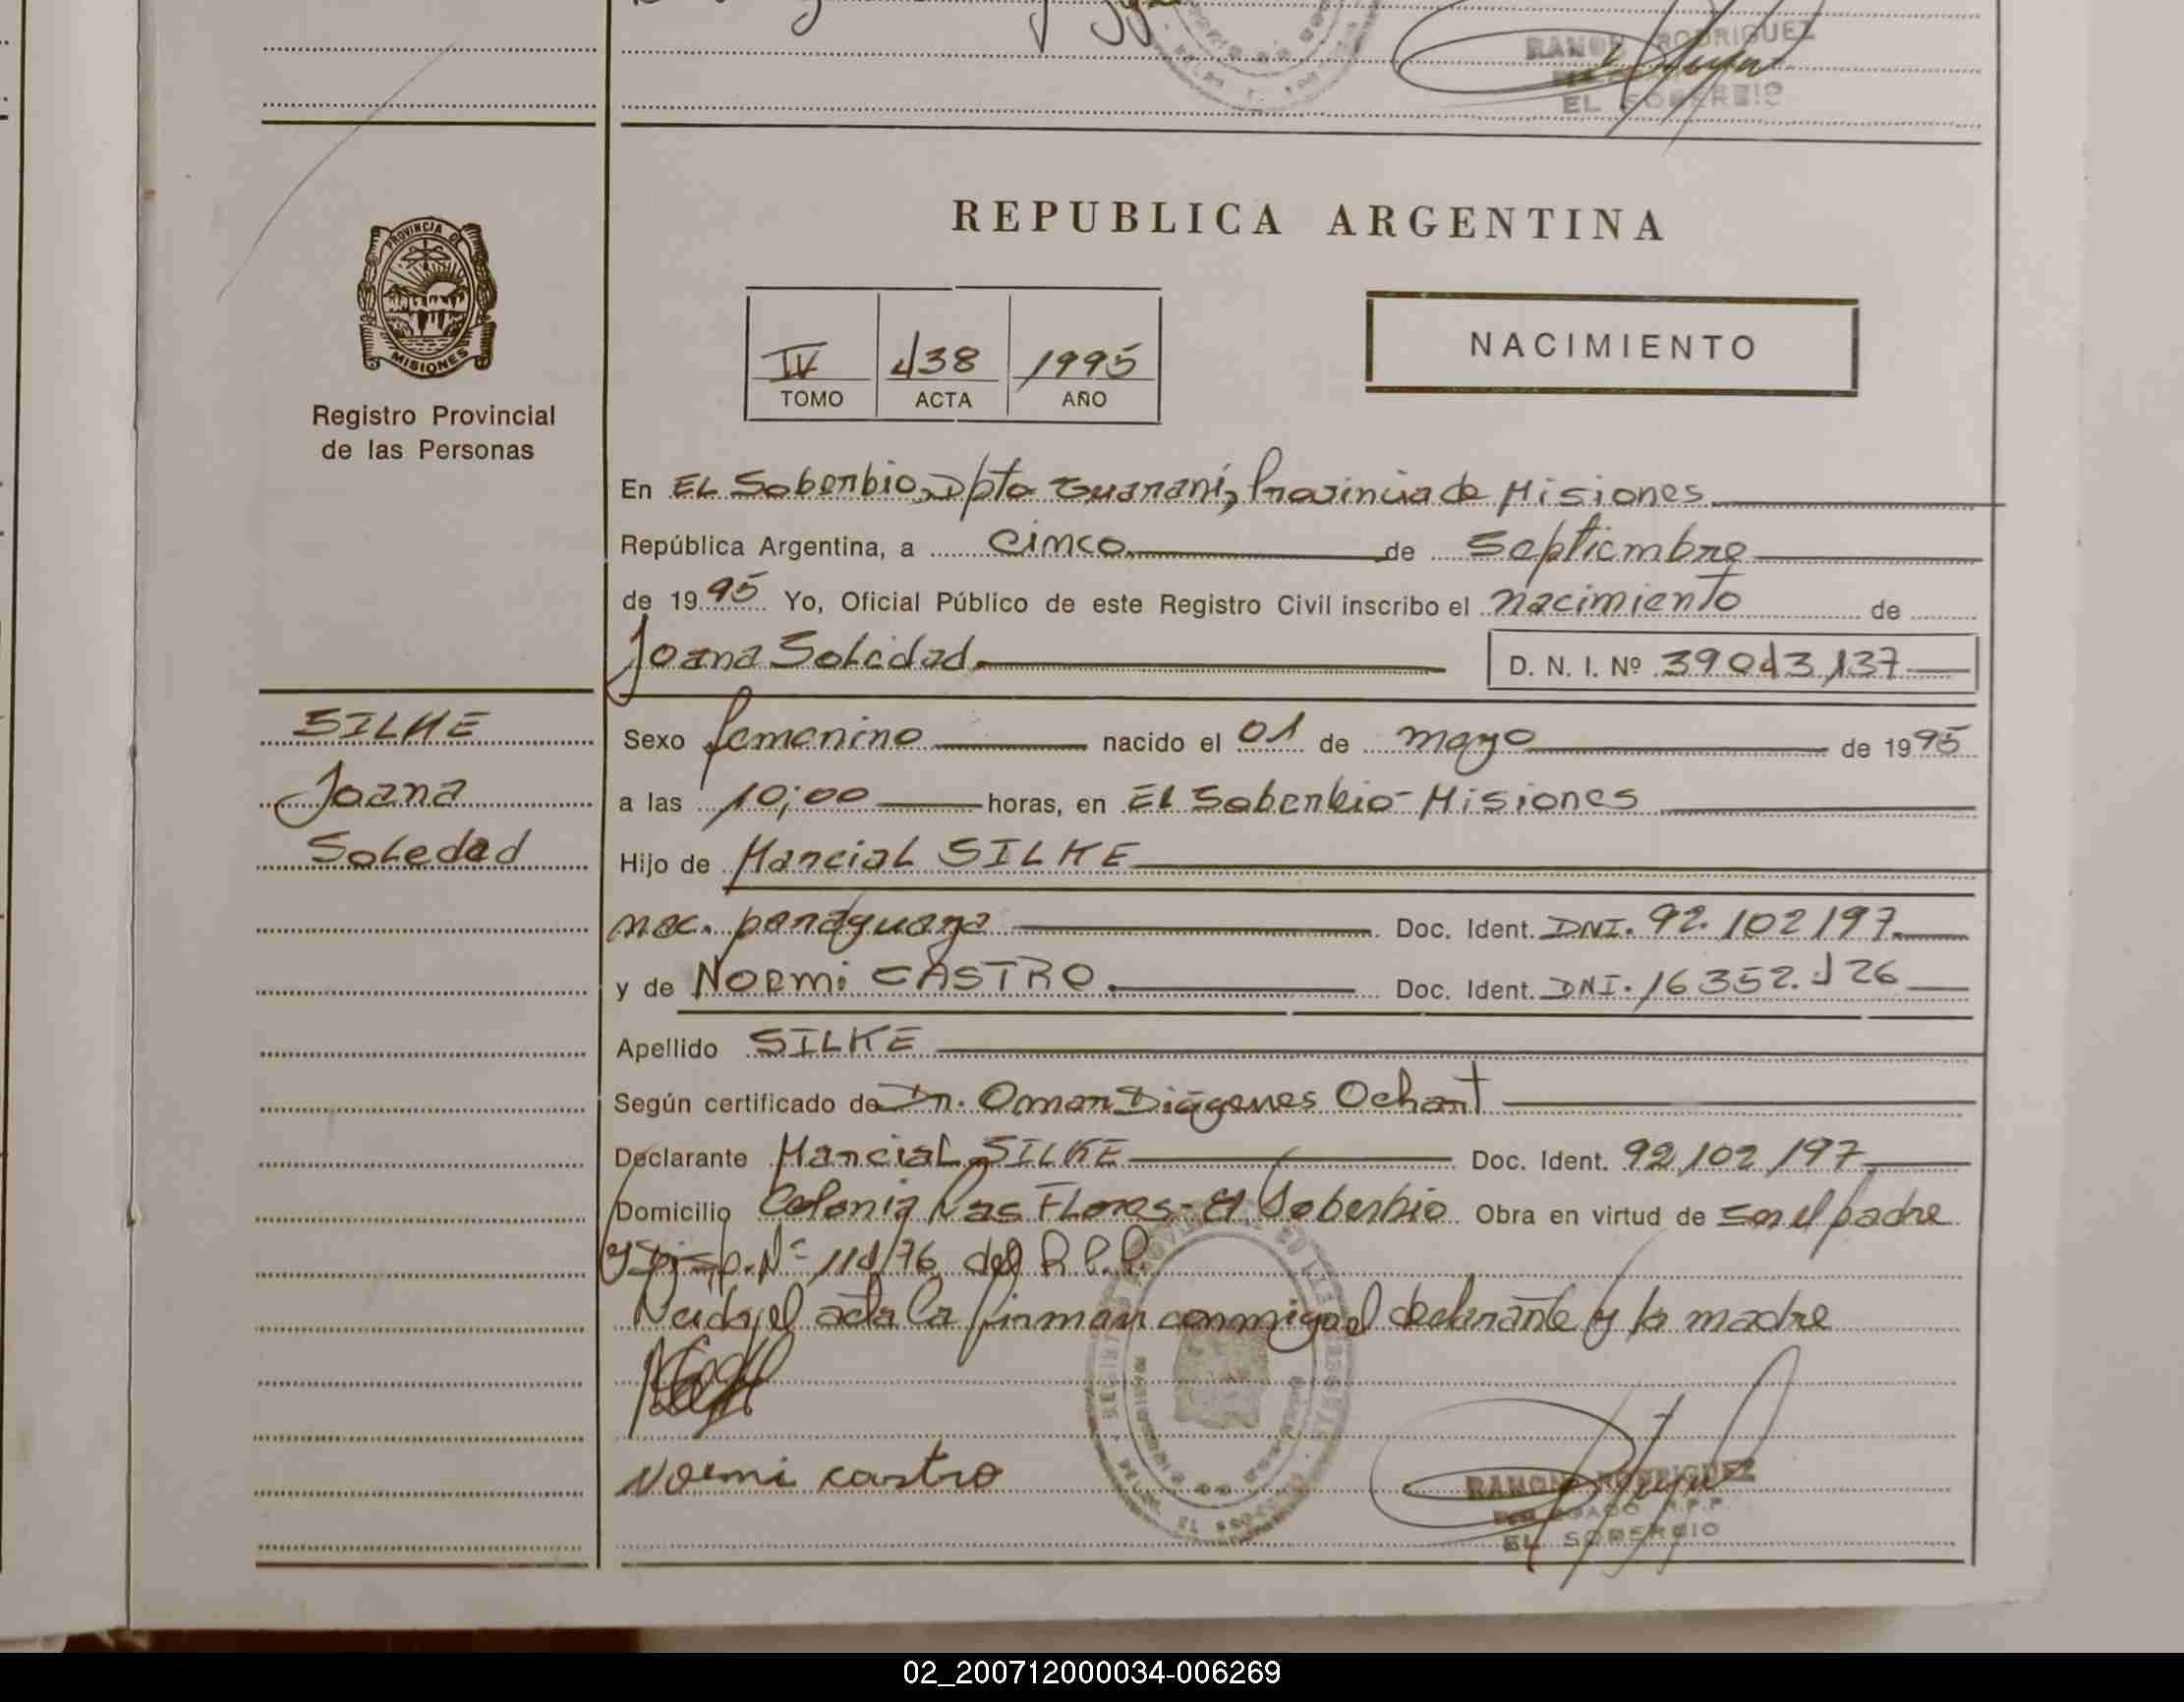 RAMON RODRIGUEZ
EL SOBERBIO
PROVINCIA DE
MISIONES
Registro Provincial
de las Personas
REPUBLICA ARGENTINA
IV 438 1995
TOMO ACTA AÑO
NACIMIENTO
En EL Soberbio, Dpto Guaraní, Provincia de Misiones
República Argentina, a cinco de Septiembre
de 1995 Yo, Oficial Público de este Registro Civil inscribo el nacimiento de
Joana Soledad D. N. I. Nº 39043137
SILKE
Joana
Soledad
Sexo femenino nacido el 01 de mayo de 1995
a las 10;00 horas, en El Soberbio - Misiones
Hijo de Marcial SILKE
nac. paraguaya Doc. Ident. DNI. 92.102197
y de NOEMi CASTRO. Doc. Ident. DNI. 16352.426
Apellido SILKE
Según certificado de Dr. Omar Diógenes Ochart
Declarante Marcial SILKE Doc. Ident. 92102197
Domicilio Colonia Las Flores - El Soberbio Obra en virtud de ser el padre
y Disp. Nº 114/76 del R.P.P.
Leida el acta la firman conmigo el declarante y la madre
Noemi castro
RAMON RODRIGUEZ
DELEGADO R.P.P.
EL SOBERBIO
02_200712000034-006269